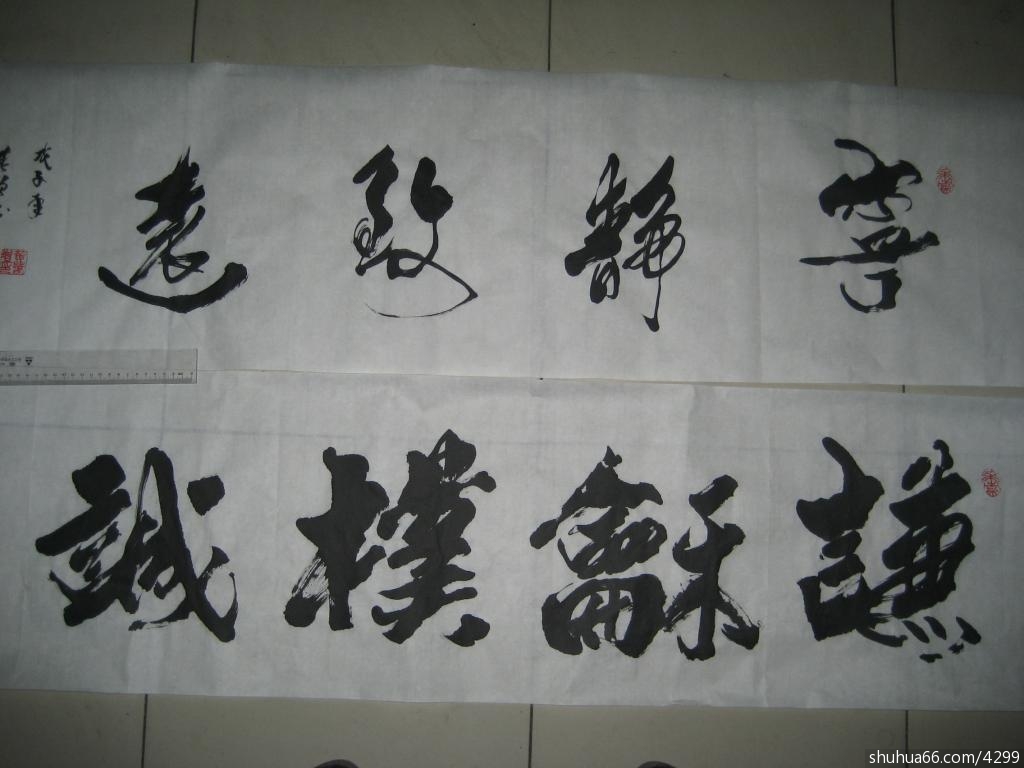 寧靜致遠
戊子夏
謙龢樸誠
shuhua66.com/4299